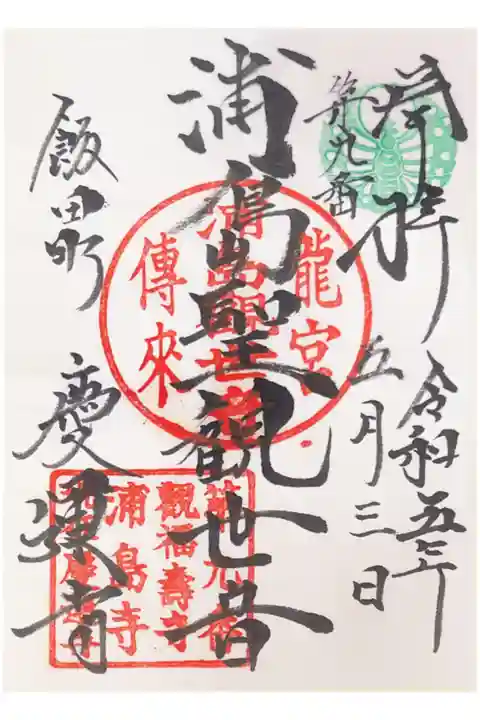 奉拝
第九番
令和五年
五月三日
浦島聖観世音
飯田町
慶運寺
龍宮
浦島観世音
傳來
觀福壽寺
浦島寺